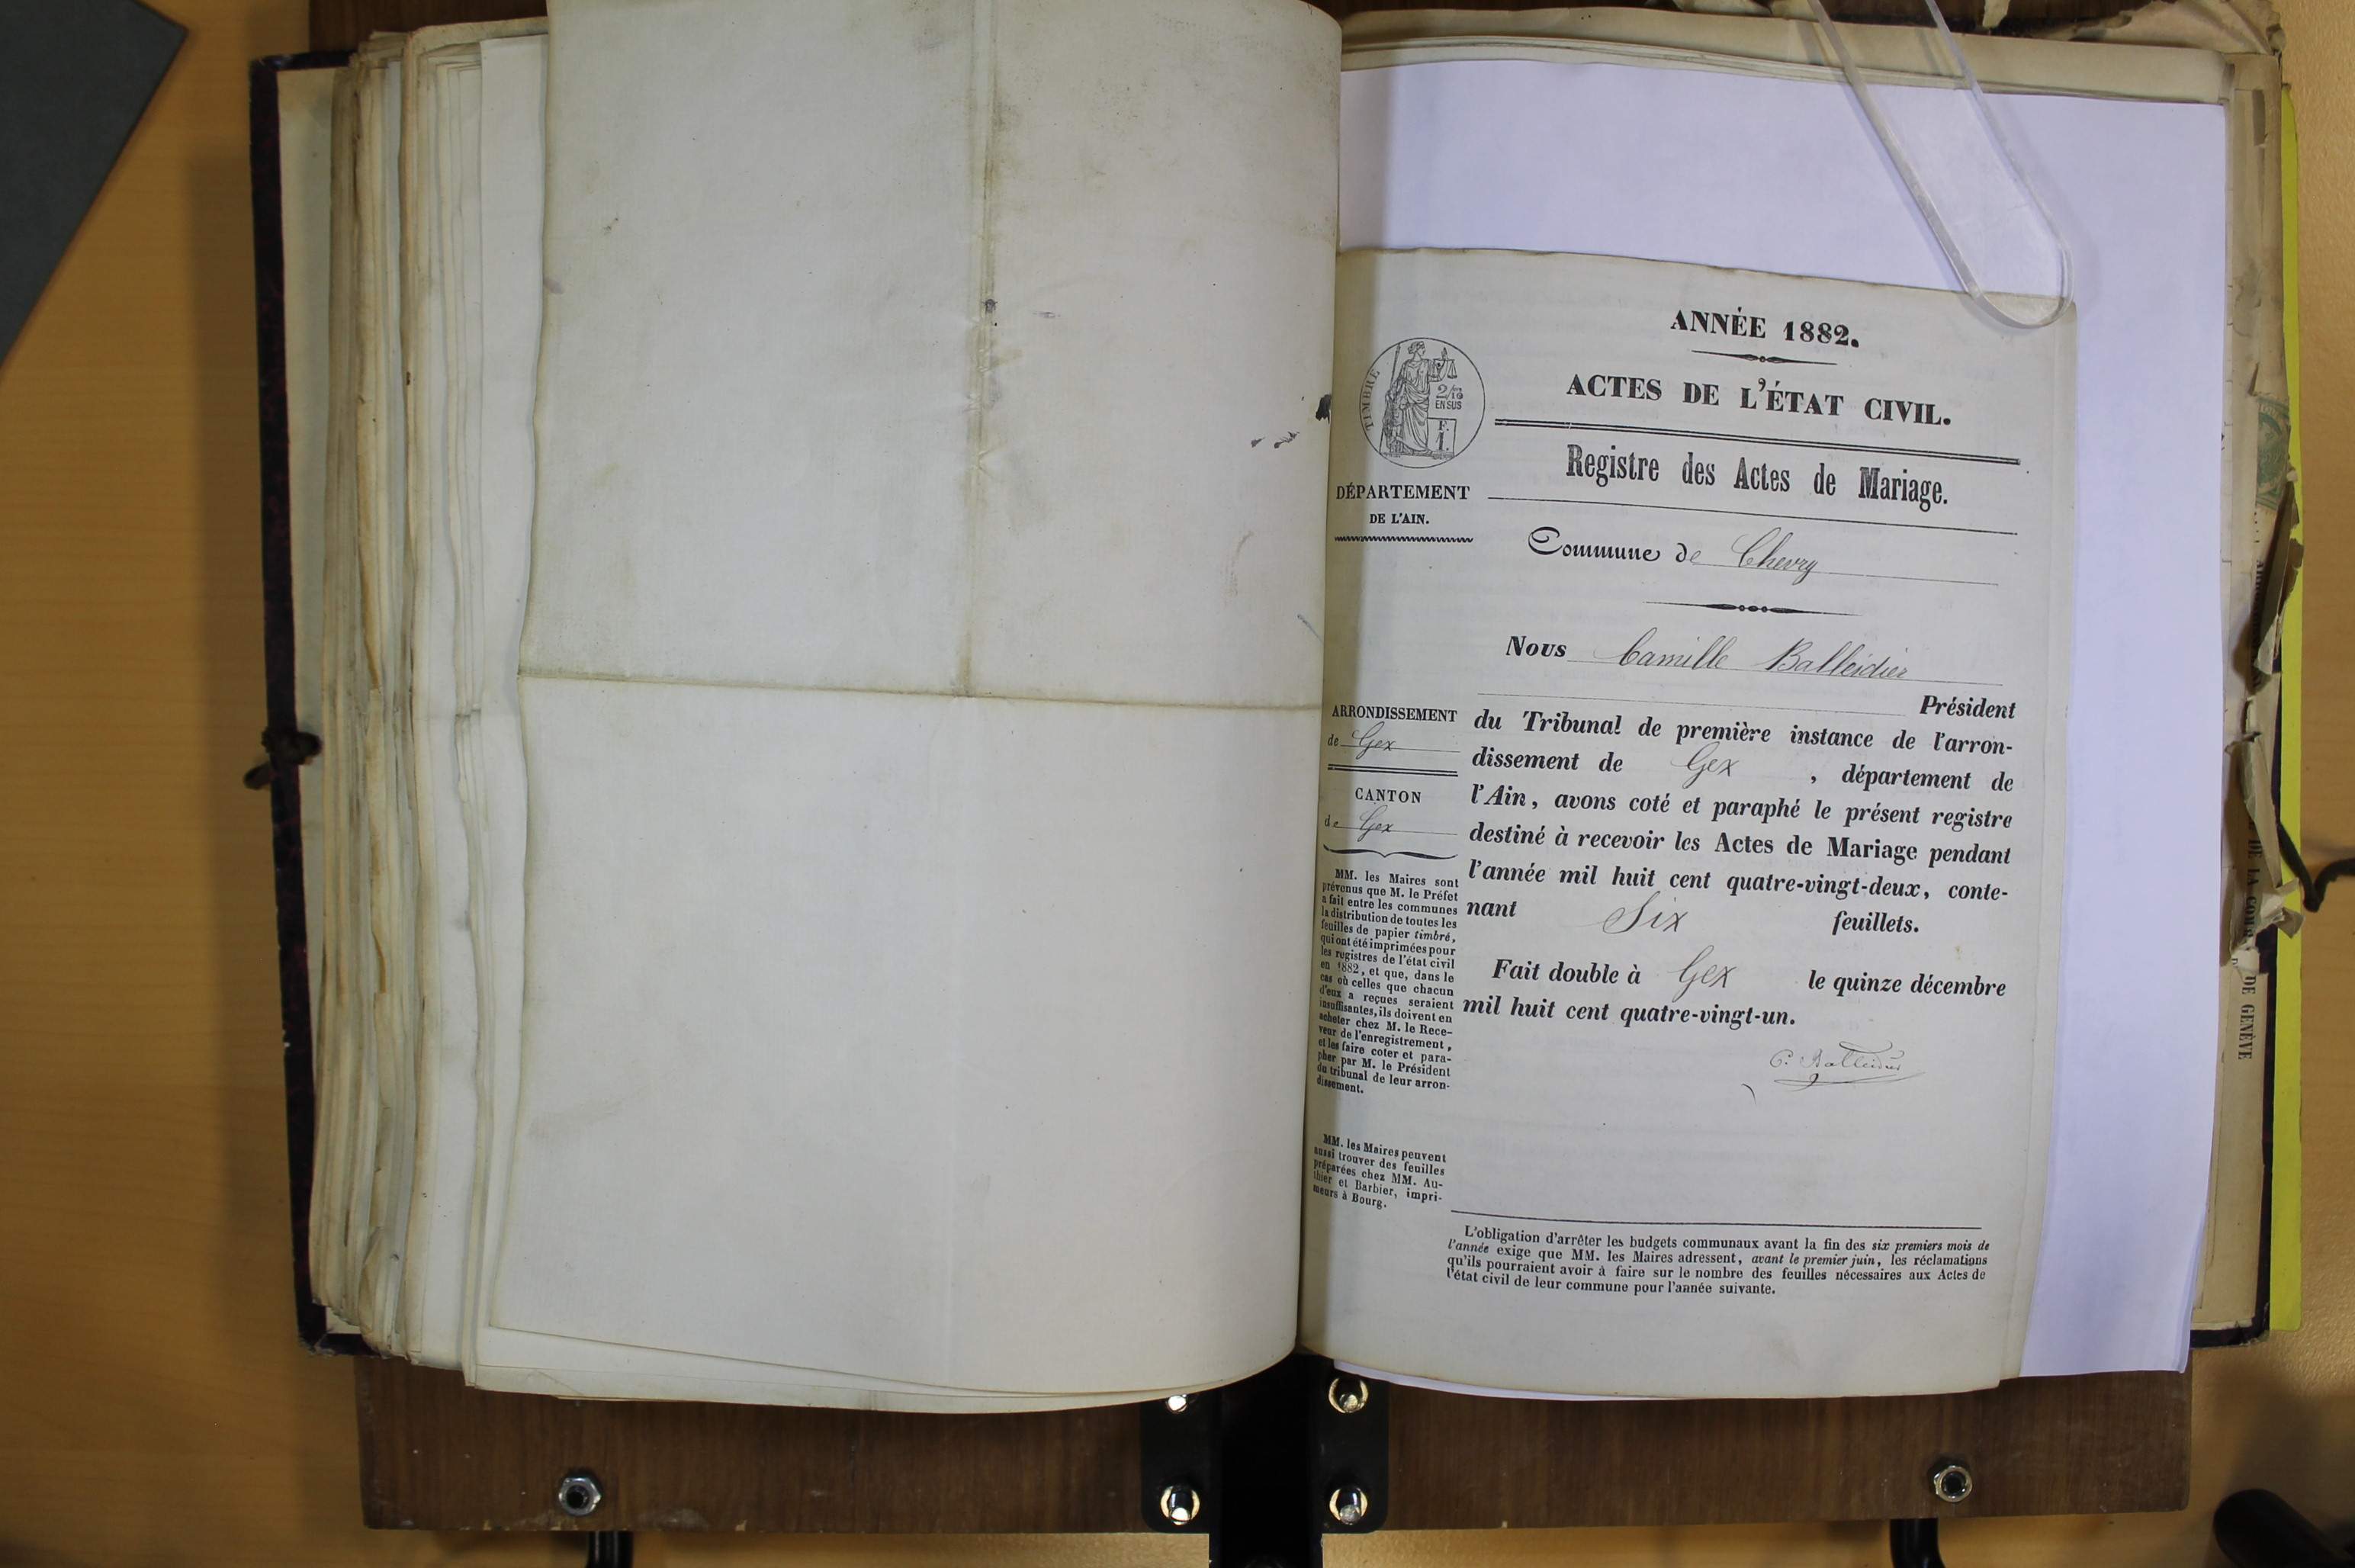 ANNÉE 1882.
ACTES DE L'ÉTAT CIVIL.
TIMBRE
2/10
EN SUS
F.
1.
Registre des Actes de Mariage.
DÉPARTEMENT
DE L'AIN.
Commune de Chevry
Nous Camille Balleidier
Président
du Tribunal de première instance de l'arron-
dissement de Gex , département de
l'Ain, avons coté et paraphé le présent registre
destiné à recevoir les Actes de Mariage pendant
l'année mil huit cent quatre-vingt-deux, conte-
nant Six feuillets.
Fait double à Gex le quinze décembre
mil huit cent quatre-vingt-un.
C. Balleidier
ARRONDISSEMENT
de Gex
CANTON
de Gex
MM. les Maires sont
prévenus que M. le Préfet
a fait entre les communes
la distribution de toutes les
feuilles de papier timbré,
qui ont été imprimées pour
les registres de l'état civil
en 1882, et que, dans le
cas où celles que chacun
d'eux a reçues seraient
insuffisantes, ils doivent en
acheter chez M. le Rece-
veur de l'enregistrement,
et les faire coter et para-
pher par M. le Président
du tribunal de leur arron-
dissement.
MM. les Maires peuvent
aussi trouver des feuilles
préparées chez MM. Au-
thier et Barbier, impri-
meurs à Bourg.
L'obligation d'arrêter les budgets communaux avant la fin des six premiers mois de
l'année exige que MM. les Maires adressent, avant le premier juin, les réclamations
qu'ils pourraient avoir à faire sur le nombre des feuilles nécessaires aux Actes de
l'état civil de leur commune pour l'année suivante.
DE GENÈVE